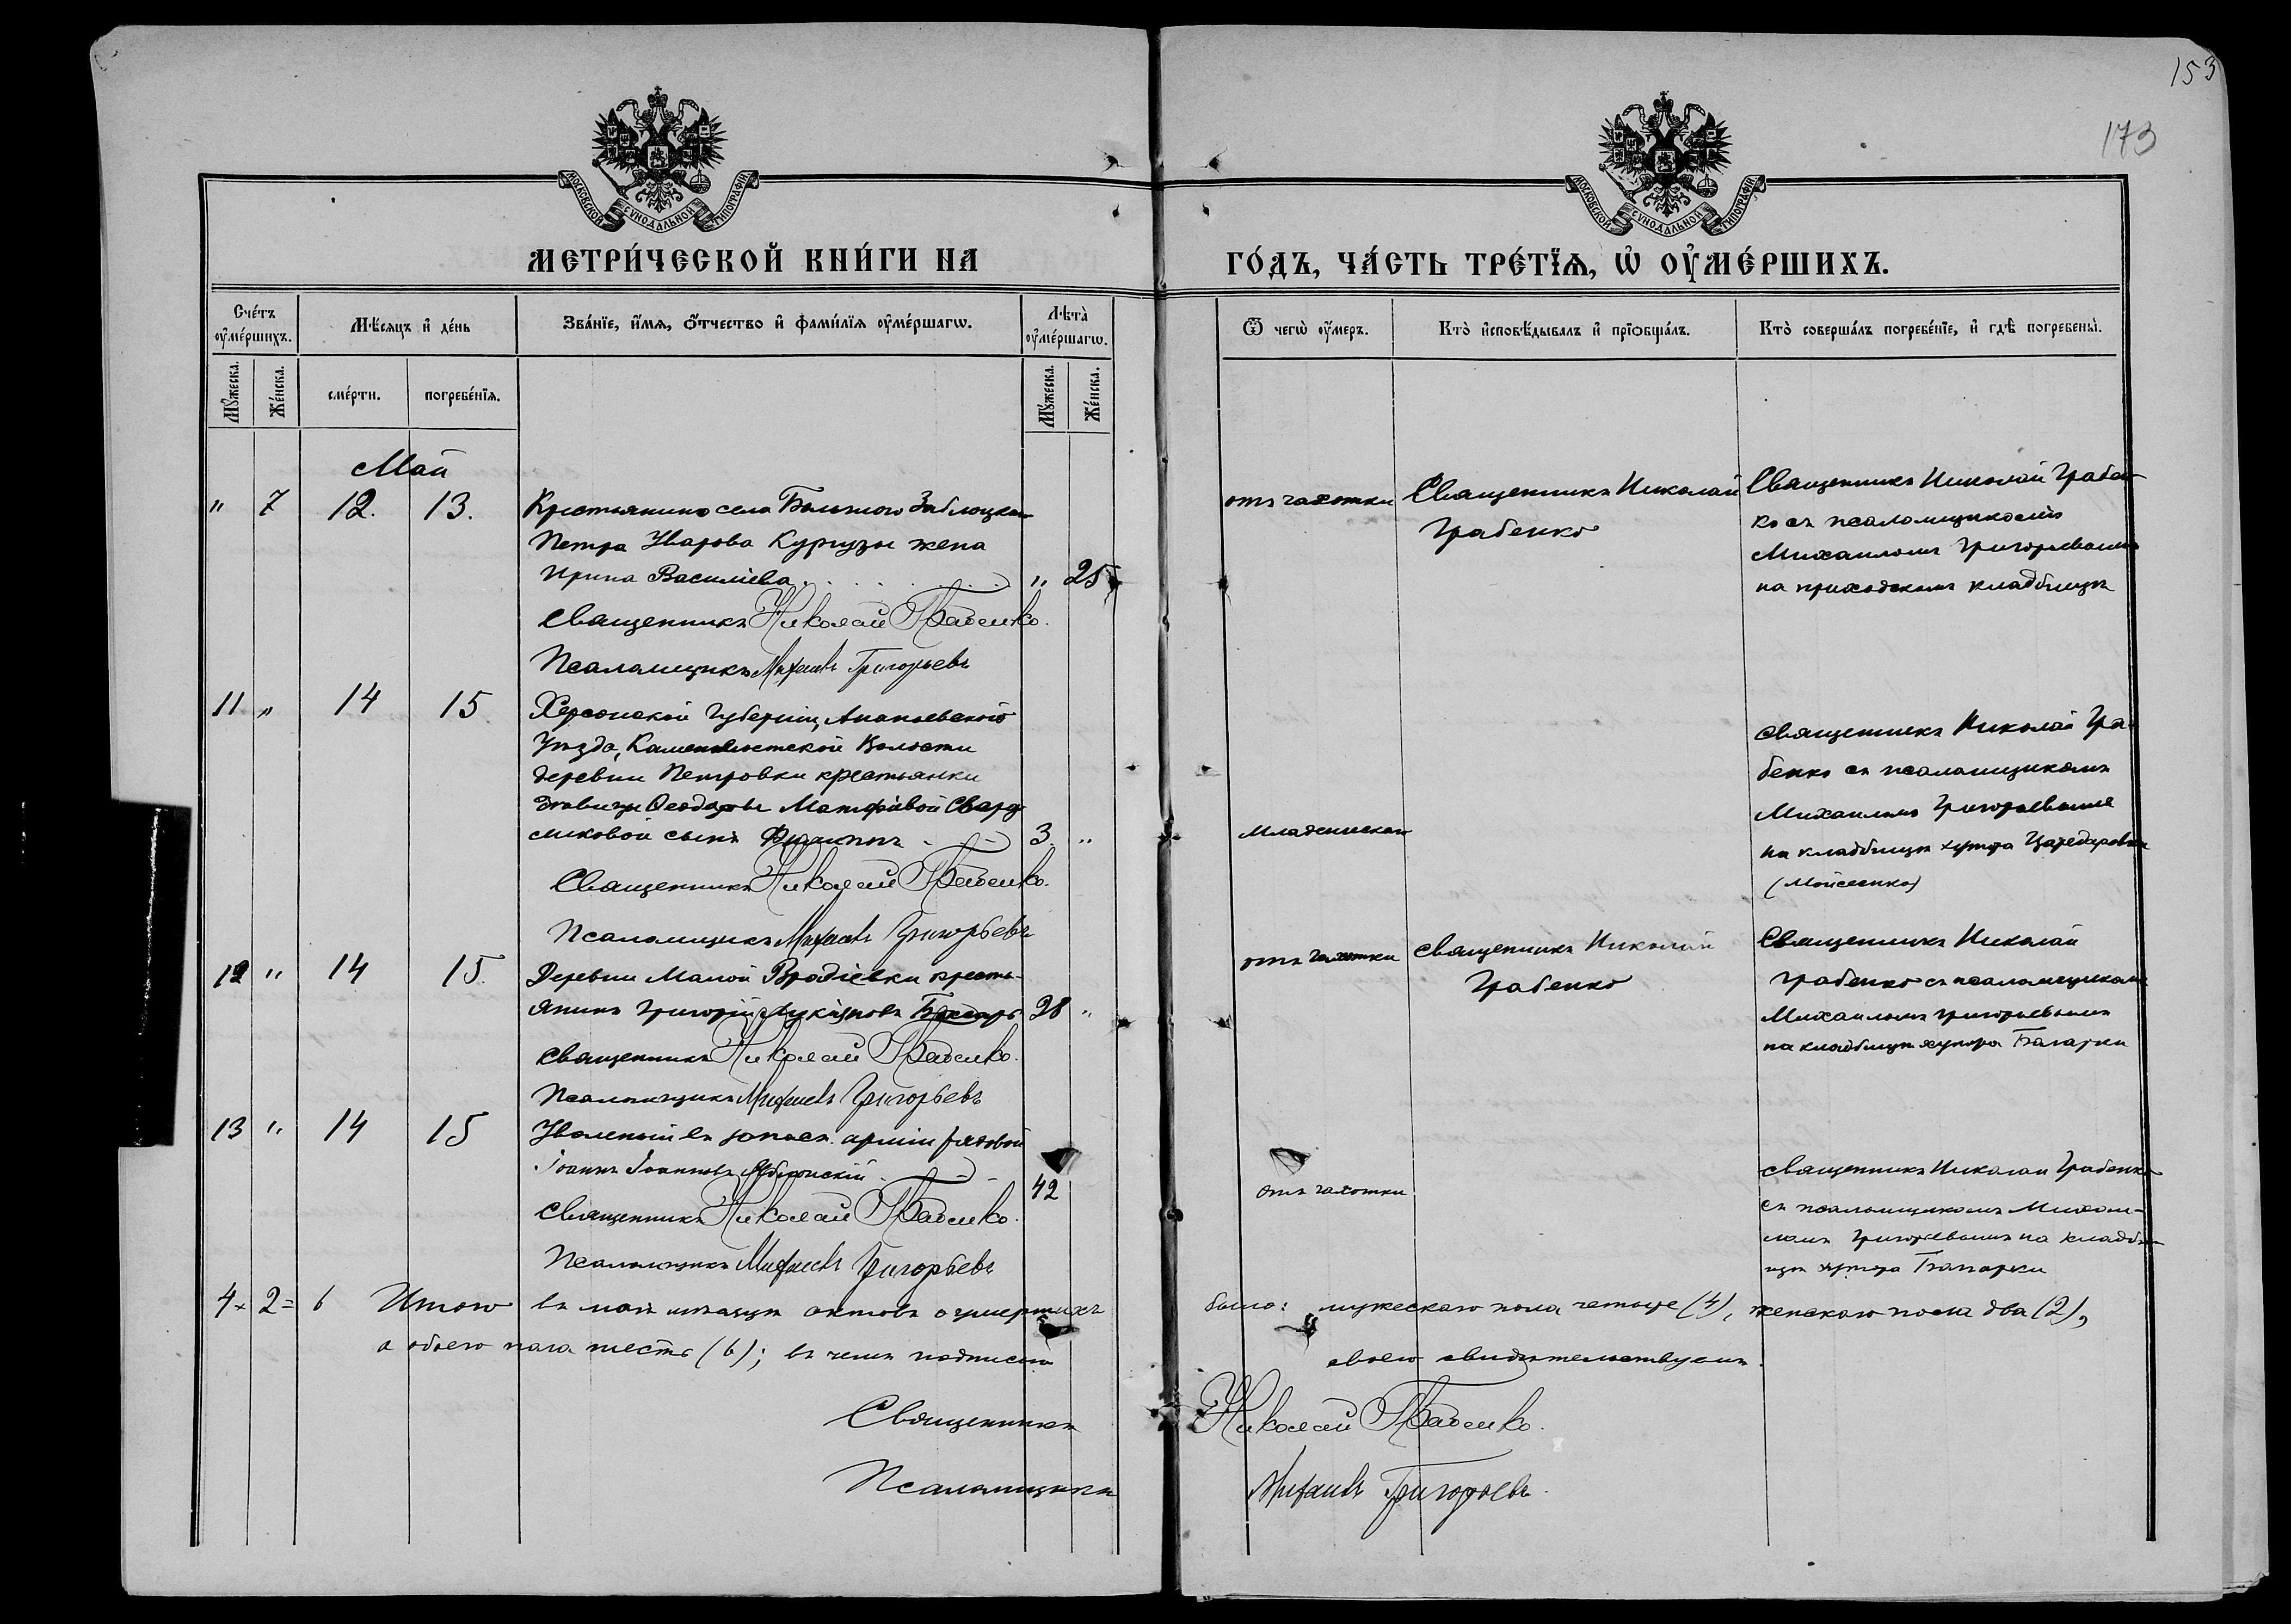 153
173
МОСКОВСКОЙ СѴНОДАЛЬНОЙ ТИПОГРАФІИ
МОСКОВСКОЙ СѴНОДАЛЬНОЙ ТИПОГРАФІИ
МЕТРИ́ЧЕСКОЙ КНИ́ГИ НА
ГО́ДЪ, ЧА́СТЬ ТРЕ́ТЇѦ, Ѡ҆ ОУ҆МЕ́РШИХЪ.
Сче́тъ оу҆ме́ршихъ.
Мѣ́сяцъ и҆ де́нь
Зва́нїе, и҆́мѧ, ѻ҆́тчество и҆ фами́лїѧ оу҆ме́ршагѡ.
Лѣ́та оу҆ме́ршагѡ.
Ѿ чегѡ̀ оу҆́меръ.
Кто̀ и҆сповѣ́дывалъ и҆ прїѡбща́лъ.
Кто̀ соверша́лъ погребе́нїе, и҆ гдѣ̀ погребены̀.
Мꙋ́жеска.
Же́нска.
сме́рти.
погребе́нїѧ.
Мꙋ́жеска.
Же́нска.
Май
" 7 12. 13. Крестьянина села Большого Заблоцкаго
Петра Уварова Кургузы жена
Ирина Василіева " 25
Священникъ Николай Грабенко.
Псаломщикъ Михаилъ Григорьевъ
отъ чахотки
Священникъ Николай
Грабенко
Священникъ Николай Грабен-
ко съ псаломщикомъ
Михаиломъ Григорьевымъ
на приходскомъ кладбищѣ
11 " 14 15 Херсонской губерніи, Ананьевскаго
Уѣзда, Волости
деревни Петровки крестьянки
дѣвицы Ѳеодоры
сынъ 3. "
Священникъ Николай Грабенко.
Псаломщикъ Михаилъ Григорьевъ
младенческая
Священникъ Николай Гра-
бенко съ псаломщикомъ
Михаиломъ Григорьевымъ
на кладбищѣ хутора
(Мойсеенко)
12 " 14 15. Деревни Малой Вродіевки кресть-
янинъ Григорій 28 "
Священникъ Николай Грабенко.
Псаломщикъ Михаилъ Григорьевъ
отъ чахотки
Священникъ Николай
Грабенко
Священникъ Николай
Грабенко съ псаломщикомъ
Михаиломъ Григорьевымъ
на кладбищѣ хутора
13 " 14 15 Уволеный въ запасъ арміи рядовой
Іоаннъ Іоанновъ 42
Священникъ Николай Грабенко.
Псаломщикъ Михаилъ Григорьевъ
отъ чахотки
Священникъ Николай Грабенко
съ псаломщикомъ Михаи-
ломъ Григорьевымъ на кладби-
щѣ хутора
4 + 2 = 6 Итого въ май мѣсяцѣ актовъ о умершихъ было: мужескаго пола четыре (4), женскаго пола два (2),
а обоего пола шесть (6); въ чемъ подписомъ своего свидѣтельствуемъ.
Священникъ Николай Грабенко.
Псаломщикъ Михаилъ Григорьевъ.